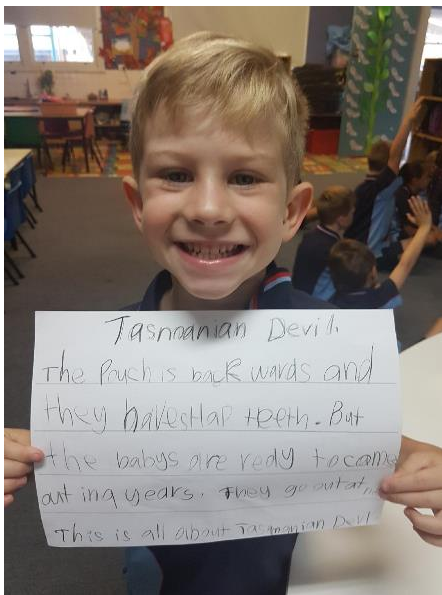 Tasmanian Devil.
The Pouch is back wards and
they have shap teeth. But
the babys are redy to come
out in 9 years. They go out at
This is all about Tasmanian Devil